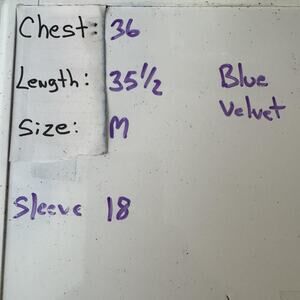 Chest: 36
Length: 35 1/2
Size: M
Blue
Velvet
Sleeve 18